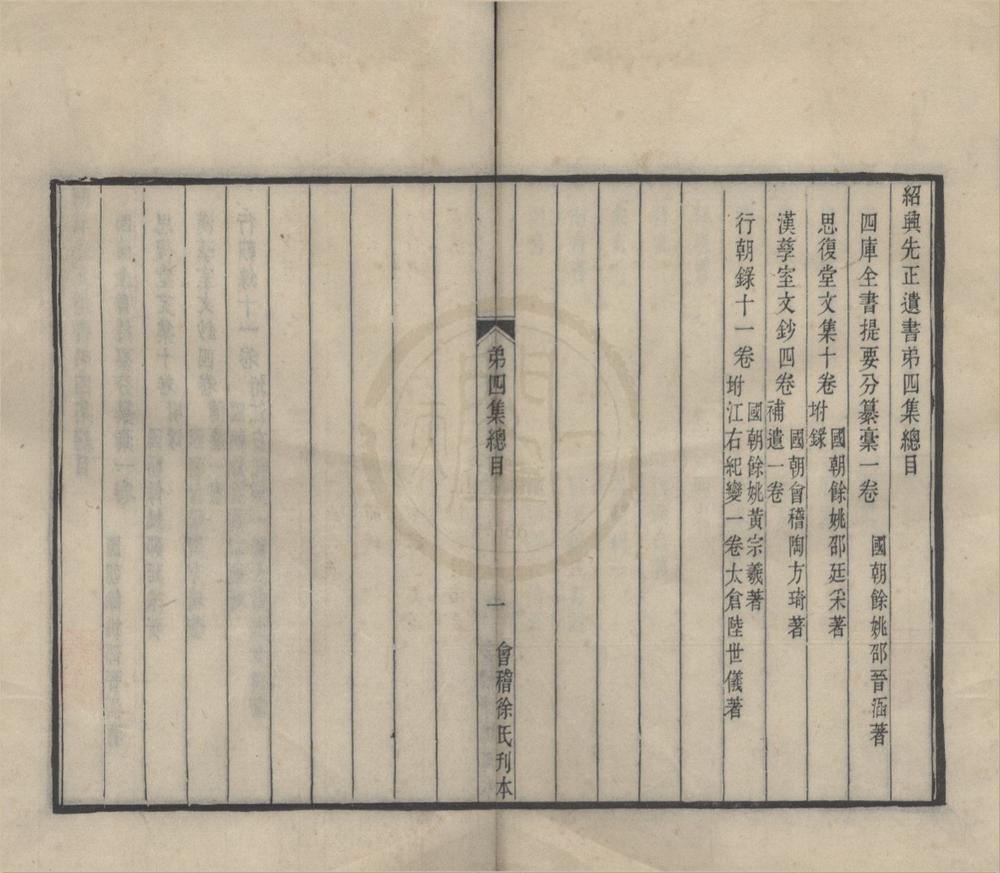 紹興先正遺書弟四集總目
四庫全書提要分纂稾一卷　國朝餘姚邵晉涵著
思復堂文集十卷坿錄　國朝餘姚邵廷采著
漢孳室文鈔四卷補遺一卷　國朝會稽陶方琦著
行朝錄十一卷　國朝餘姚黃宗羲著
坿江右紀變一卷太倉陸世儀著
弟四集總目　一　會稽徐氏刊本